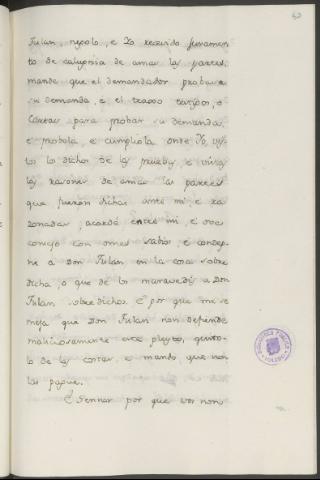 40
Fulan, negolo, e Yo recevido juramen
to de calupnia de amas las partes,
mandé que el demandador probase
su demanda, e el traxo testigos, o
Cartas para probar su demanda
e probola, e cumpliola onde Yo, vis
tos los dichos de las pruebas e vistas
las razones de amas las partes
que fueron dichas ante mi, e ra
zonadas, acordé entre mi, e ove
consejo con omes sabios, e condep
né a Don Fulan en la cosa sobre
dicha, o que dé los maravedis a Don
Fulan sobredichos. E por que mi se
meja que Don Fulan non defiende
maliciosamente este pleyto, quito
lo de las costas, e mando que non
las pague.
E Sennor por que vos non
BIBLIOTECA PUBLICA
TOLEDO